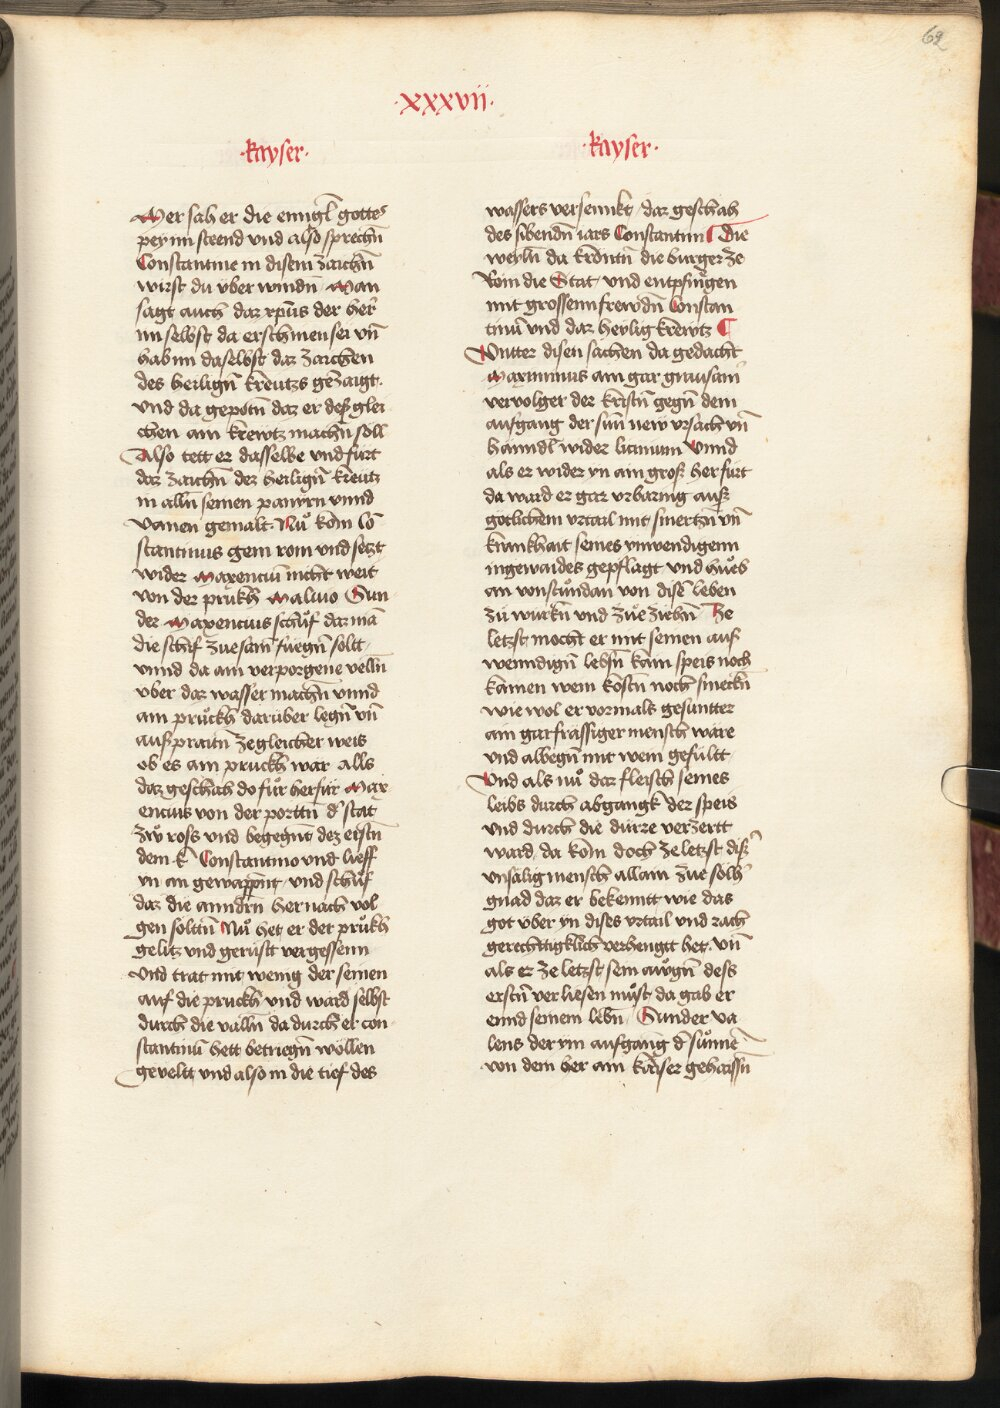 69
·xxxvii·
·kayser·
·kayser·
Mer sah er die enngl̄ gottes
pey im steend vnd also sprechn̄
Constantine in disem zaichn̄
wirst du vber windn̄ Man
sagt auch daz xp̄us der her
im selbst da erschinen sei vn̄
hab im daselbst daz zaichen
des heilign̄ krewtzs gezaigt·
vnd da gepotn̄ daz er deß glei
chen ain krewtz machn̄ soll
Also tett er dasselbe vnd fürt
daz zaichn̄ dez heilign̄ kreutz
in alln̄ seinen panirn vnnd
vanen gemalt· Nů kom Co
stantinus gein rom vnd setzt
wider Maxenciū nicht weit
von der prukh̄ Malivo Sun
der Maxencius schůf daz mā
die schif zuesam̄ fuegn̄ sollt
vnnd da ain verporgene velln̄
vber daz wasser machn̄ vnnd
ain průckh̄ darüber legn̄ vn̄
außpraitn̄ ze gleicher weis
ob es ain pruckh̄ wär alls
daz geschah do fůr herfür Max
encius von der porttn̄ d' stat
zẘ ross vnd begegnt dez erstn̄
dem k̄ Constantino vnd lieff
yn an gewappent vnd schůf
daz die anndrn̄ hernach vol
gen soltn̄ Nů het er der průkh̄
gelitz vnd gerüst vergessenn
Vnd trat mit wenig der seinen
auf die pruckh̄ vnd ward selbst
durch die valln̄ da durch er con
stantinū hett betriegn̄ wöllen
geveltt vnd also in die tief des
wassers versennkt daz geschah
des sibendn̄ iars Constantini Die
weyln̄ da krontn̄ die burger ze
Rom die Stat vnd entpfiengen
mit grossenn frewdn̄ Constan
tinū vnd daz heylig krewtz
Vntter disen sachen da gedacht
Maximinus ain gar grausam̄
vervolger der kristn̄ gegn̄ dem
aufgang der sun̄ new vrsach vn̄
hanndl̄ wider licinium Vnnd
als er wider yn ain groß her fürt
da ward er gar vrbaring auß
gotlichem vrtail mit smertzn̄ vn̄
krankhait seines ynwendigenn
ingewaides gepflagt vnd hůeb
an vonstůndan von disē leben
zu würkn̄ vnd zueziehn̄ Ze
letzst mocht er mit seinen auß
wenndign̄ lebsn̄ kain speis noch
kainen wein kostn̄ noch smeckn̄
wie wol er vormals gesuntter
ain gar frässiger mensch wäre
vnd albegn̄ mit wein gefültt
Vnd als nů daz fleisch seines
leibs durch abgangk der speis
vnd durch die dürre verzertt
ward da kom doch ze letzst diß
vnsälig mensch allain zue solh'
gnad daz er bekenntt wie das
got vber yn dises vrtail vnd rach
gerechttigklich verhengtt het· vn̄
als er ze letzst sein awgn̄ dess
erstn̄ verliesen můst da gab er
ennd seinem lebn̄ Sunder va
lens der ym aufgang d' sůnne
von dem her ain kaiser gehaissn̄